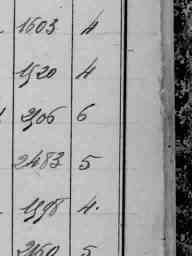 1603 4
1520 4
2506 6
2483 5
1598 4.
2150 5